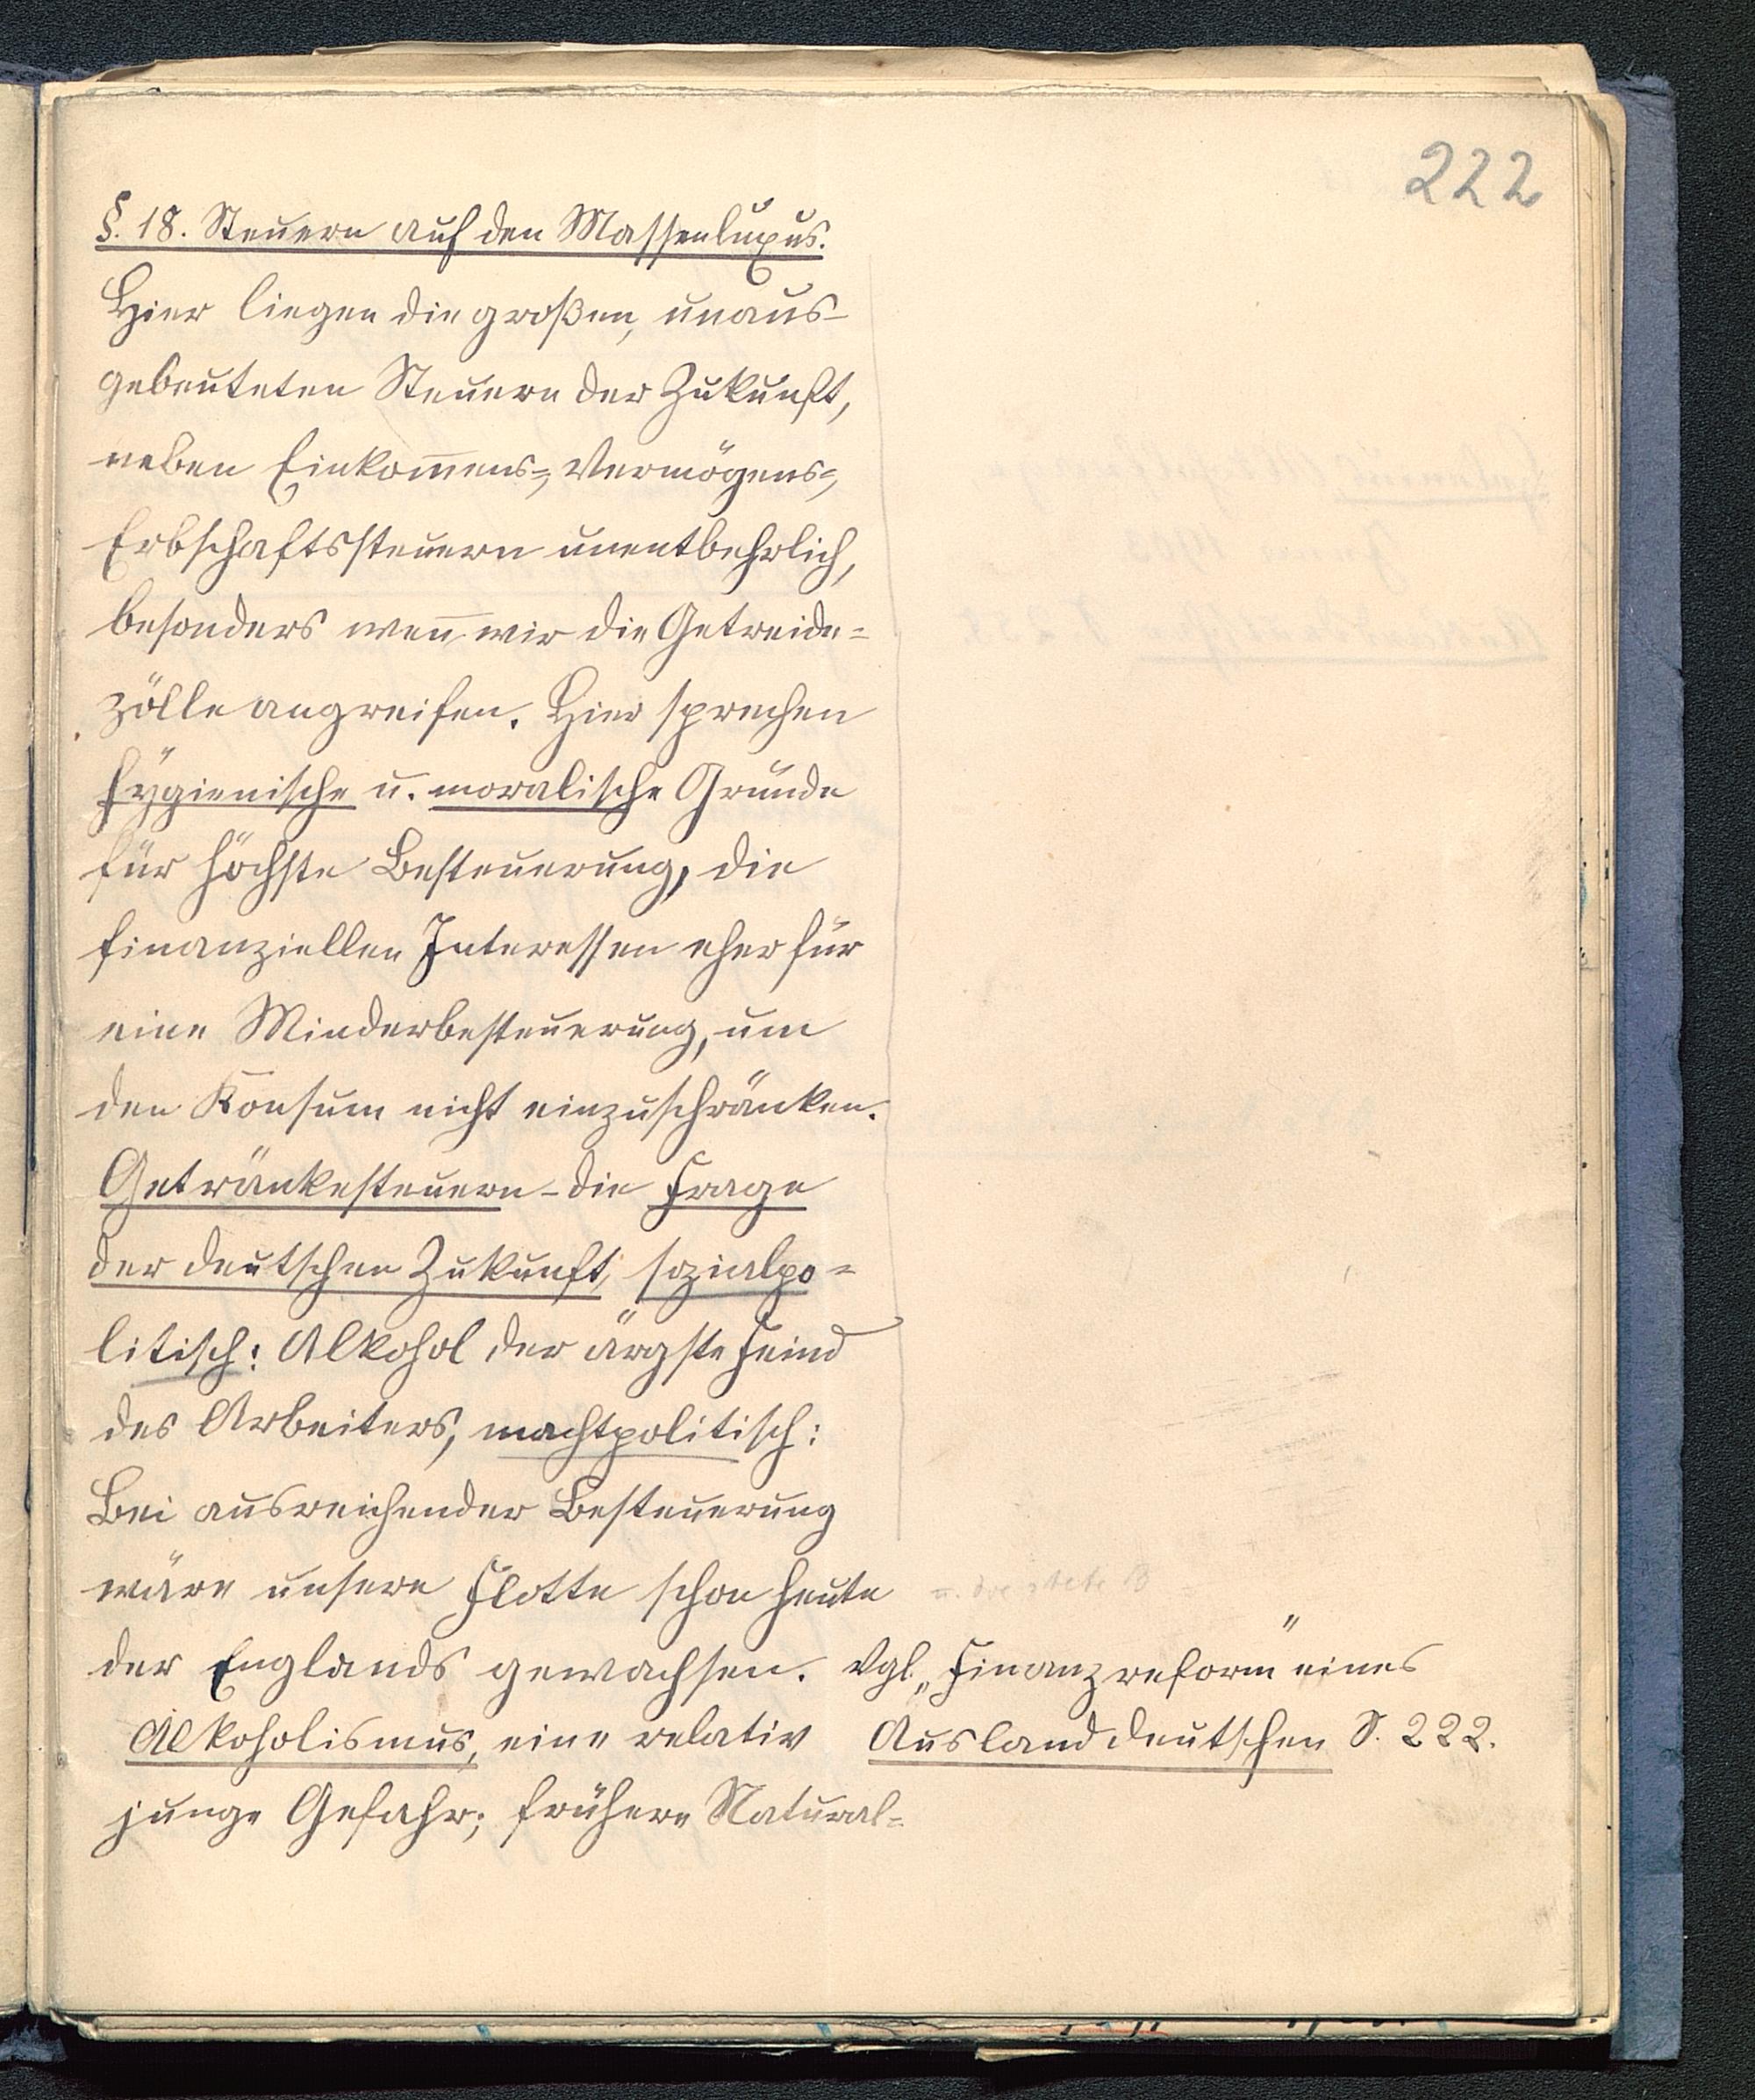 222
§. 18. Steuern auf den Massenluxus.
Hier liegen die großen, unaus-
gebeuteten Steuern der Zukunft,
neben Einkom̅ens=, Vermögens=,
Erbschaftssteuern unentbehrlich,
besonders wen̅ wir die Getreide=
zölle angreifen. Hier sprechen
hygienische u. moralische Gründe
für höchste Besteuerung, die
finanziellen Interessen eher für
eine Minderbesteuerung, um
den Konsum nicht einzuschränken.
Getränkesteuern - die Frage
der deutschen Zukunft, sozialpo=
litisch: Alkohol der ärgste Feind
des Arbeiters, machtpolitisch:
Bei ausreichender Besteuerung
wäre unsere Flotte schon heute
der Englands gewachsen. Vgl. „Finanzreform" eines
Alkoholismus, eine relativ Auslanddeutschen S. 222.
junge Gefahr; frühere Natural=